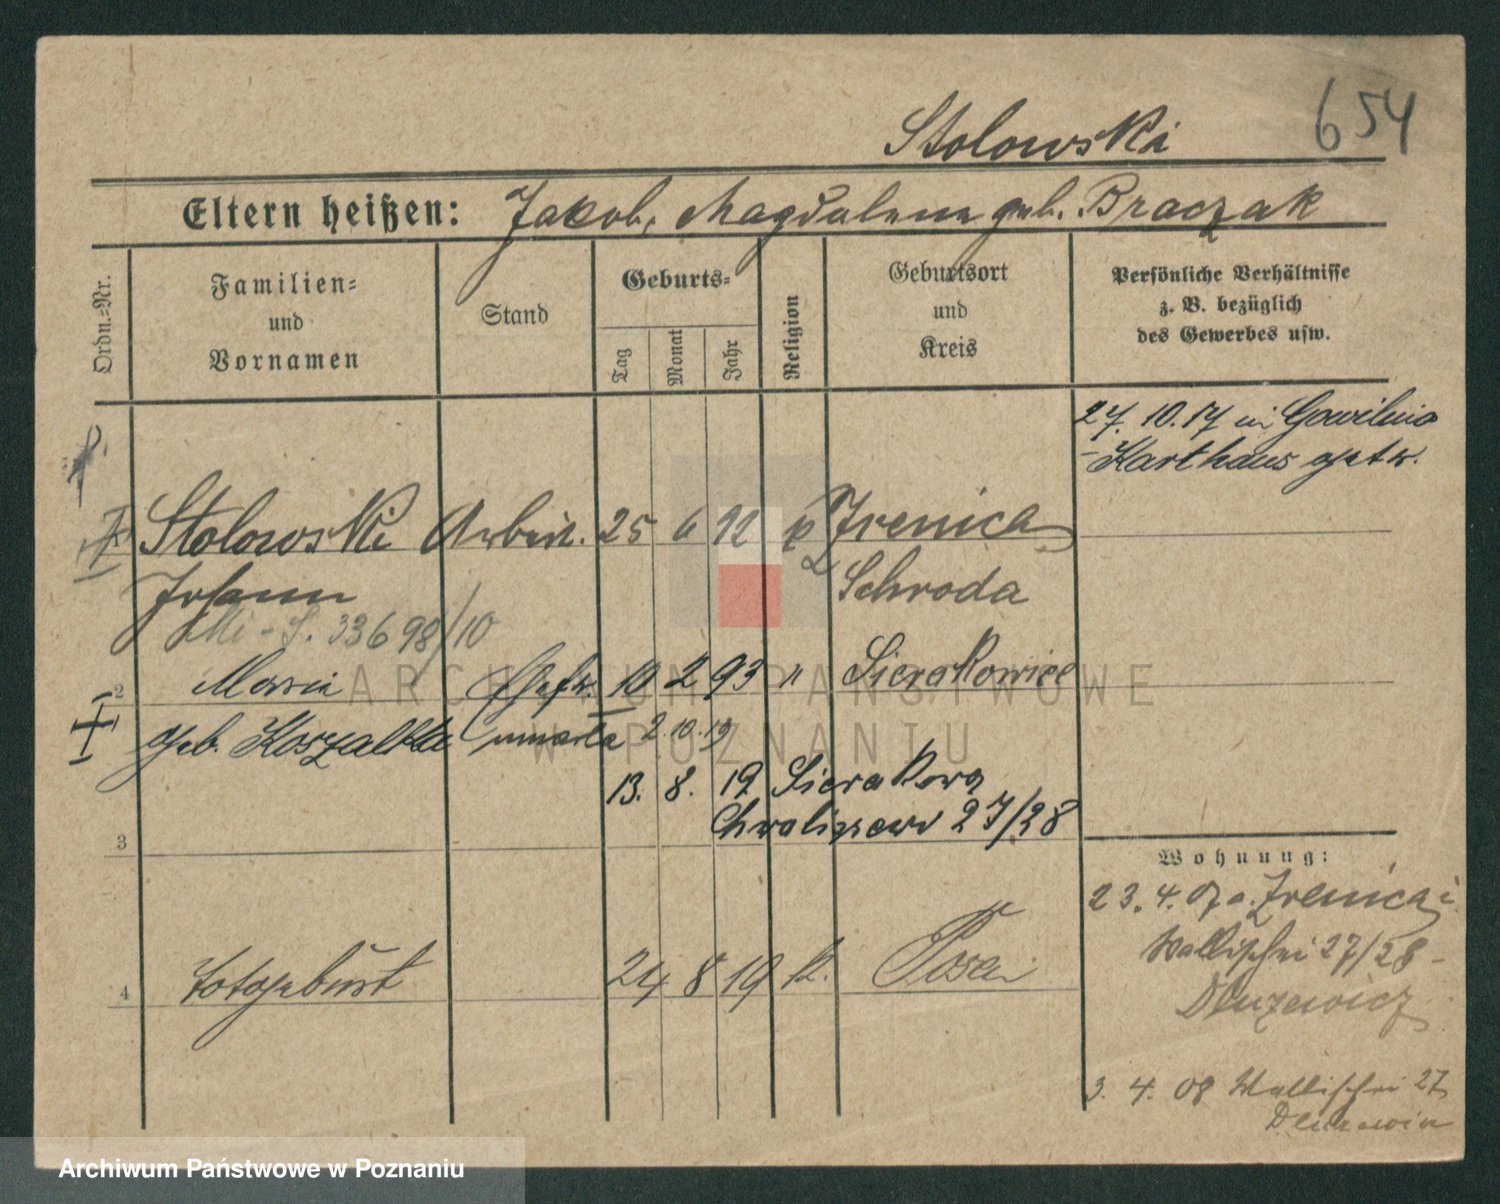 654
Stolowski
Eltern heißen: Jakob, Magdalena geb. Braczak
Ordn.-Nr.
Familien-
und
Vornamen
Stand
Geburts-
Tag
Monat
Jahr
Religion
Geburtsort
und
Kreis
Persönliche Verhältnisse
z. B. bezüglich
des Gewerbes usw.
27. 10. 17 in Gowilino
-Karthaus getr.
Stolowski Arbeit. 25 6 92 k Zrenica
Johann Schroda
33698/10
2 Maria Ehefr. 10 2 93 " Sierakowice
geb. Koszalka umarła 2. 10. 19
13. 8. 19 Sierakowa
Chwaliszewo 27/28
3
Wohnung:
23. 4. 07 a. Zrenica
Wallischei 27/28 -
Dluzewicz
4 Totgeburt 24 8 19 k. Posen
3. 4. 08 Wallischei 27
ARCHIWUM PAŃSTWOWE
W POZNANIU
Archiwum Państwowe w Poznaniu